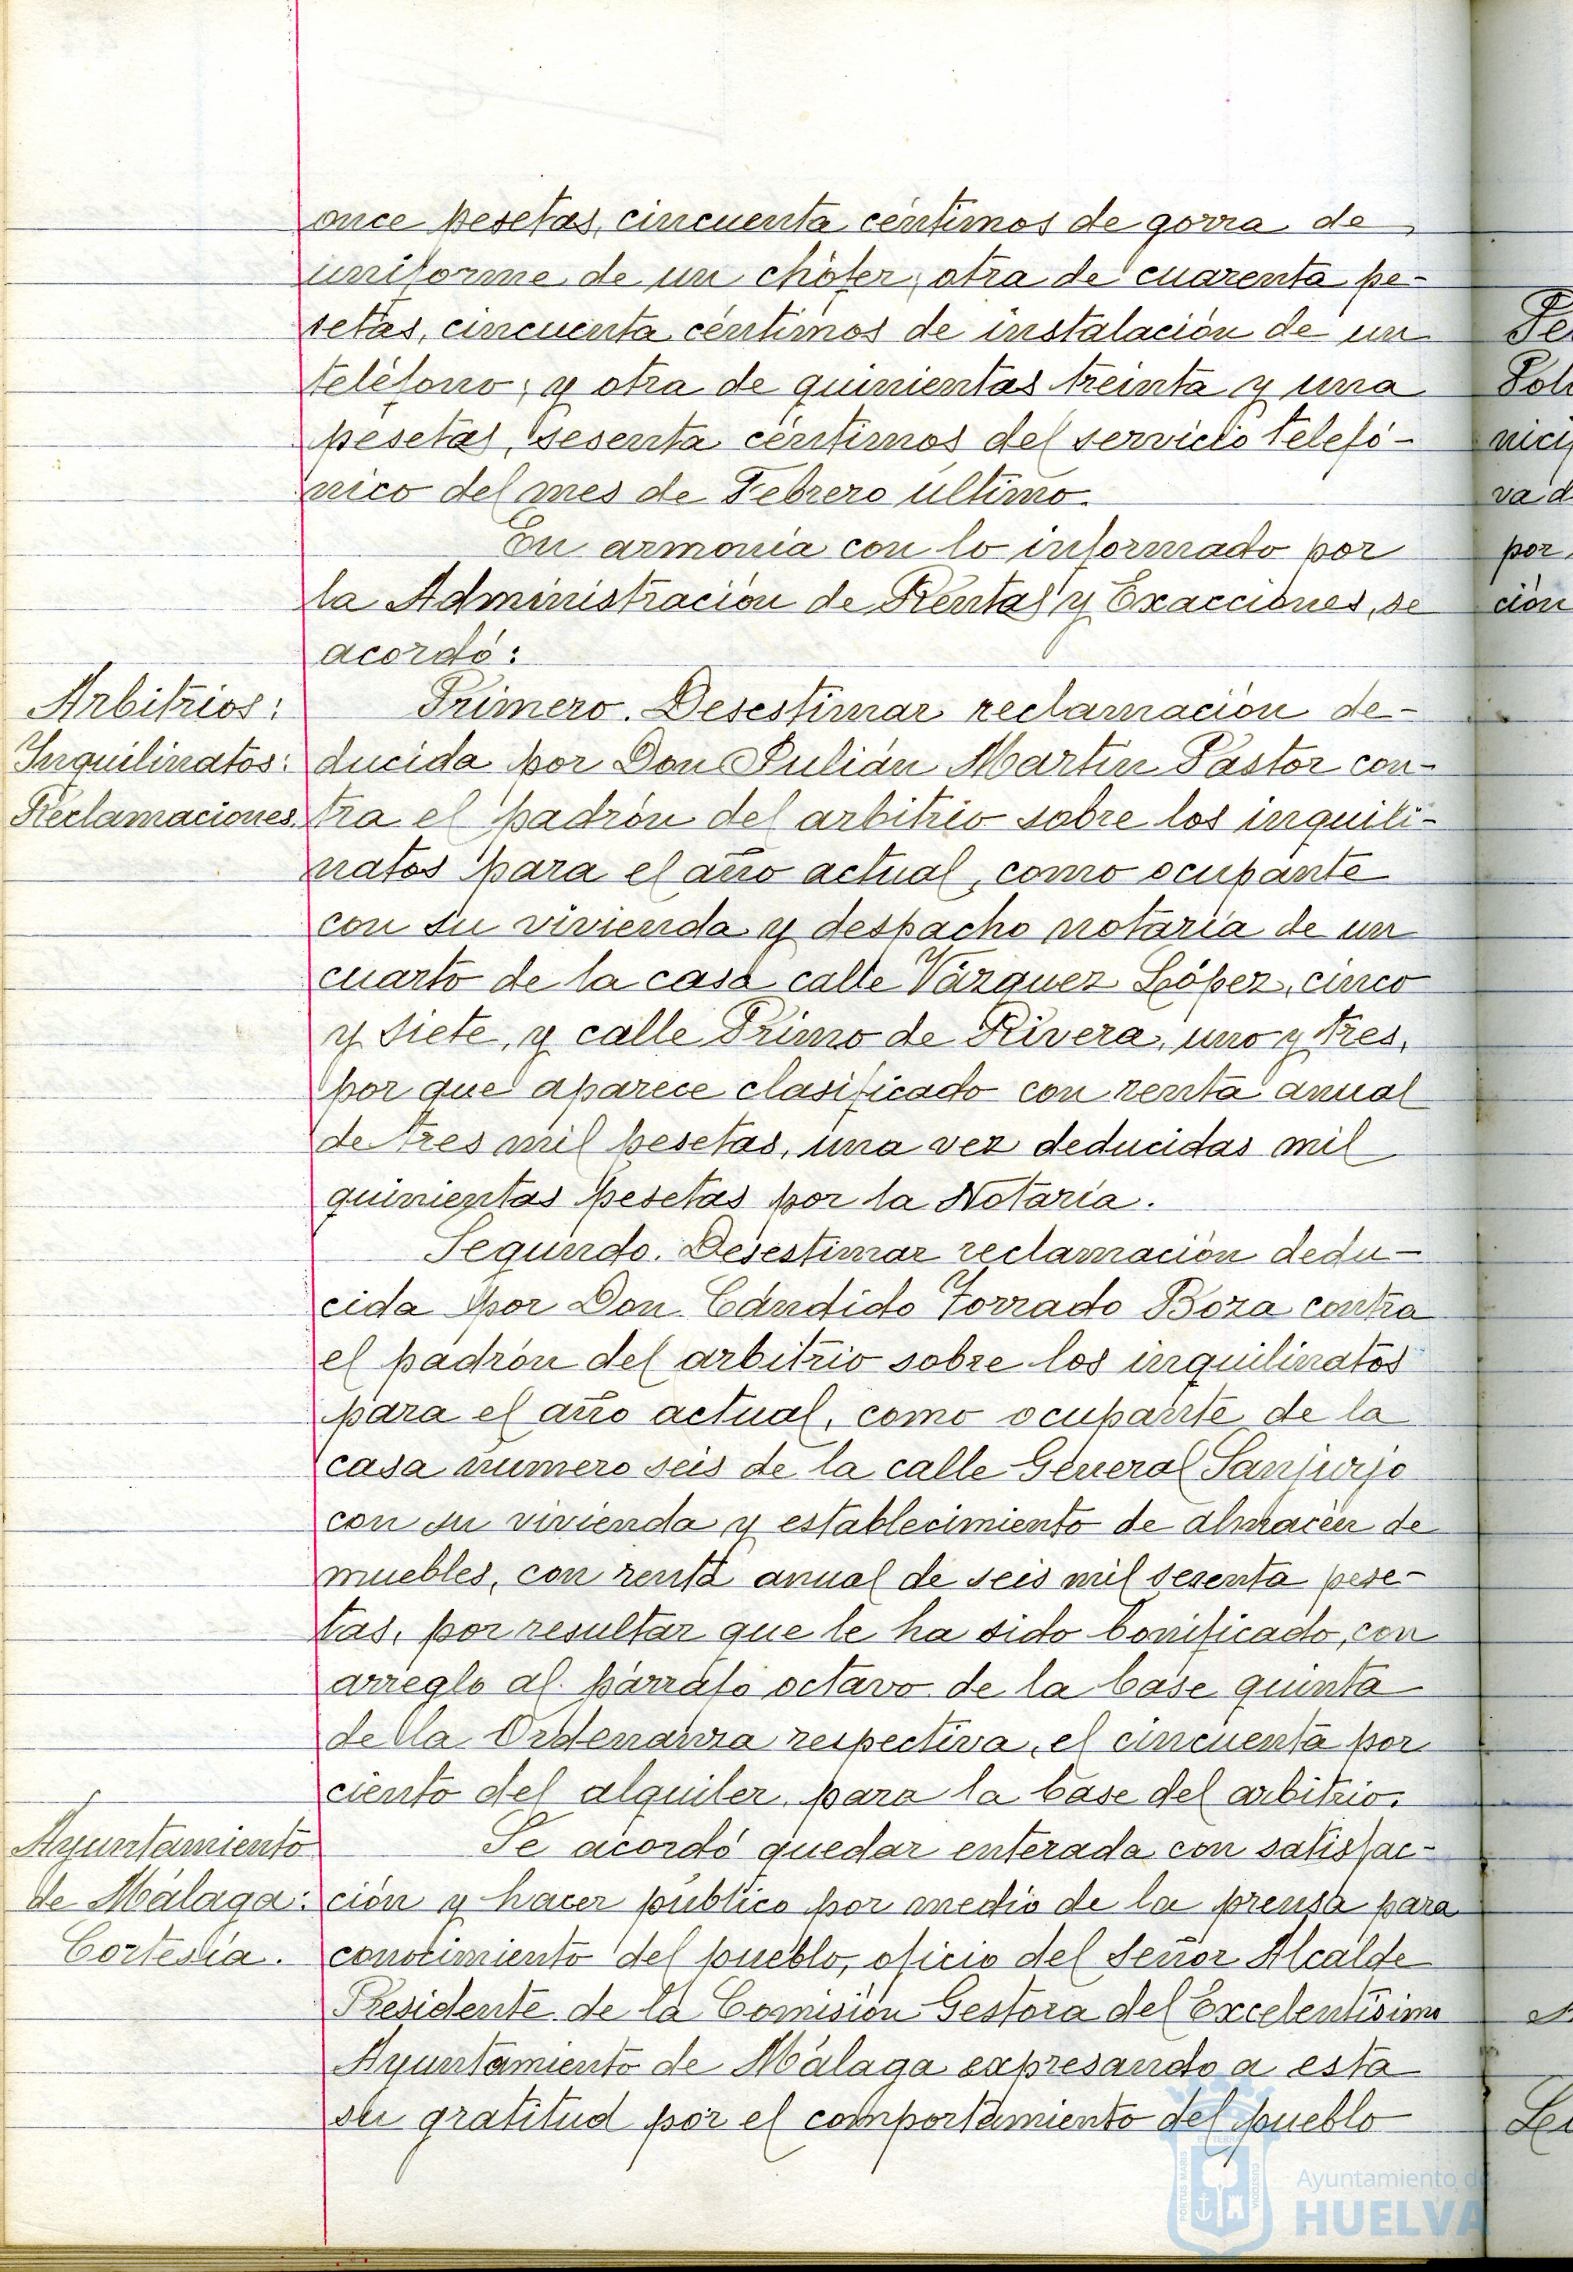 once pesetas, cincuenta céntimos de gorra de
uniforme de un chófer, otra de cuarenta pe-
setas, cincuenta céntimos de instalación de un
teléfono; y otra de quinientas treinta y una
pesetas, sesenta céntimos del servicio telefó-
nico del mes de Febrero último.
En armonía con lo informado por
la Administración de Rentas y Exacciones, se
acordó:
Arbitrios:
Inquilinatos:
Reclamaciones.
Primero. Desestimar reclamación de-
ducida por Don Julián Martín Pastor con-
tra el padrón del arbitrio sobre los inquili-
natos para el año actual, como ocupante
con su vivienda y despacho notaría de un
cuarto de la casa calle Vázquez López, cinco
y siete, y calle Primo de Rivera, uno y tres,
por que aparece clasificado con renta anual
de tres mil pesetas, una vez deducidas mil
quinientas pesetas por la Notaría.
Segundo. Desestimar reclamación dedu-
cida por Don Cándido Torrado Boza contra
el padrón del arbitrio sobre los inquilinatos
para el año actual, como ocupante de la
casa número seis de la calle General Sanjurjo
con su vivienda y establecimiento de almacén de
muebles, con renta anual de seis mil sesenta pese-
tas, por resultar que le ha sido bonificado, con
arreglo al párrafo octavo de la base quinta
de la Ordenanza respectiva, el cincuenta por
ciento del alquiler para la base del arbitrio.
Ayuntamiento
de Málaga:
Cortesía.
Se acordó quedar enterada con satisfac-
ción y hacer público por medio de la prensa para
conocimiento del pueblo, oficio del Señor Alcalde
Presidente de la Comisión Gestora del Excelentísimo
Ayuntamiento de Málaga expresando a esta
su gratitud por el comportamiento del pueblo
Pe
Pol
nici
va d
por
ción
Le
PORTUS MARIS
ET TERRAE
CUSTODIA
Ayuntamiento de
HUELVA